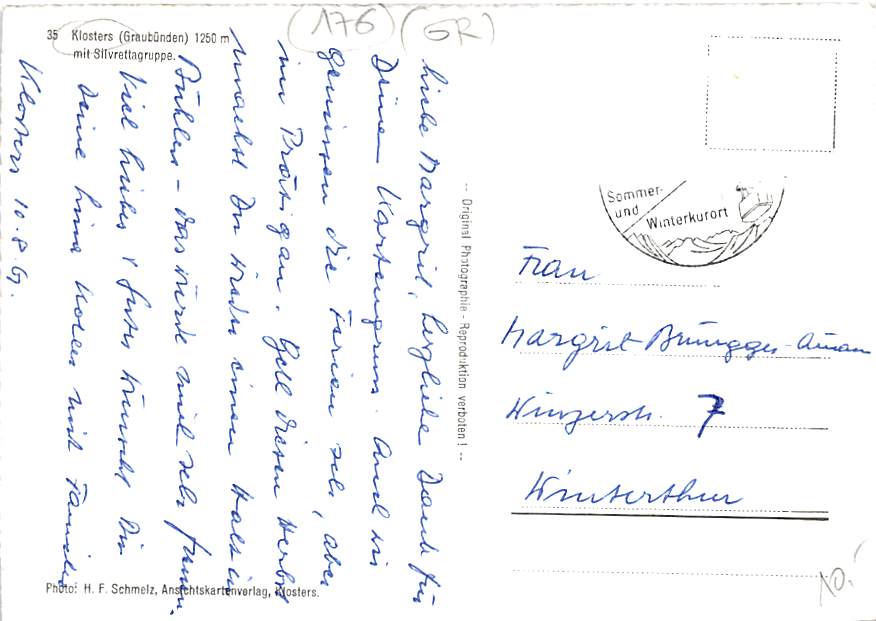 (176) (GR)
35 Klosters (Graubünden) 1250 m
mit Silvrettagruppe.
Liebe Margrit, herzlichen Dank für
Deinen Kartengruss. Auch wir
geniessen die Ferien sehr, aber
im Prätigau. Gell diesen Herbst
machst Du wieder einen Halt in
Bühler - das würde mich sehr freuen.
Viel Liebes & Gutes wünscht Dir
Deine mit Familie
Klosters 10.8.61.
-- Original Photographie - Reproduktion verboten! --
Sommer-
und Winterkurort
Frau
Margrit Brüngger-Aman
Winzerstr. 7
Winterthur
Photo: H. F. Schmelz, Ansichtskartenverlag, Klosters.
10.-